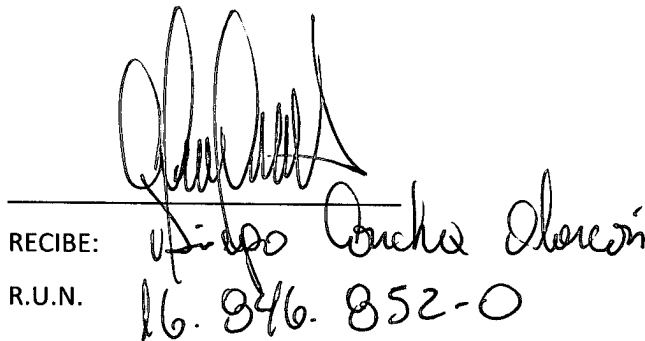 RECIBE: Concha Alarcón
R.U.N. 16.846.852-0